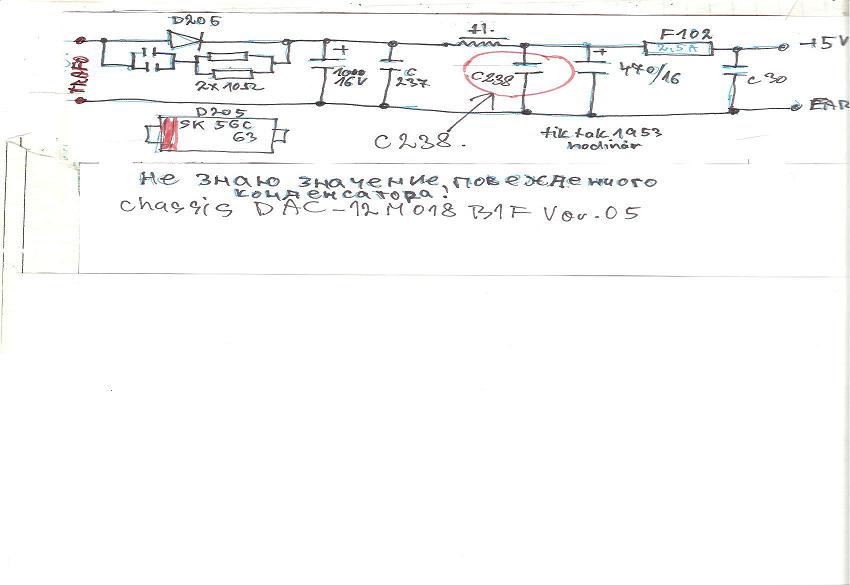 D205
TRAFO
2x10Ω
+
1000
16V
C
237
C238
+
470/16
F102
2,5A
C30
+5V
EAR
D205
SK 56C
63
C238.
tik tak 1953
hodinár
Не знаю значение, повежденного
конденсатора!
chassis DAC-12M018 B1F Ver.05